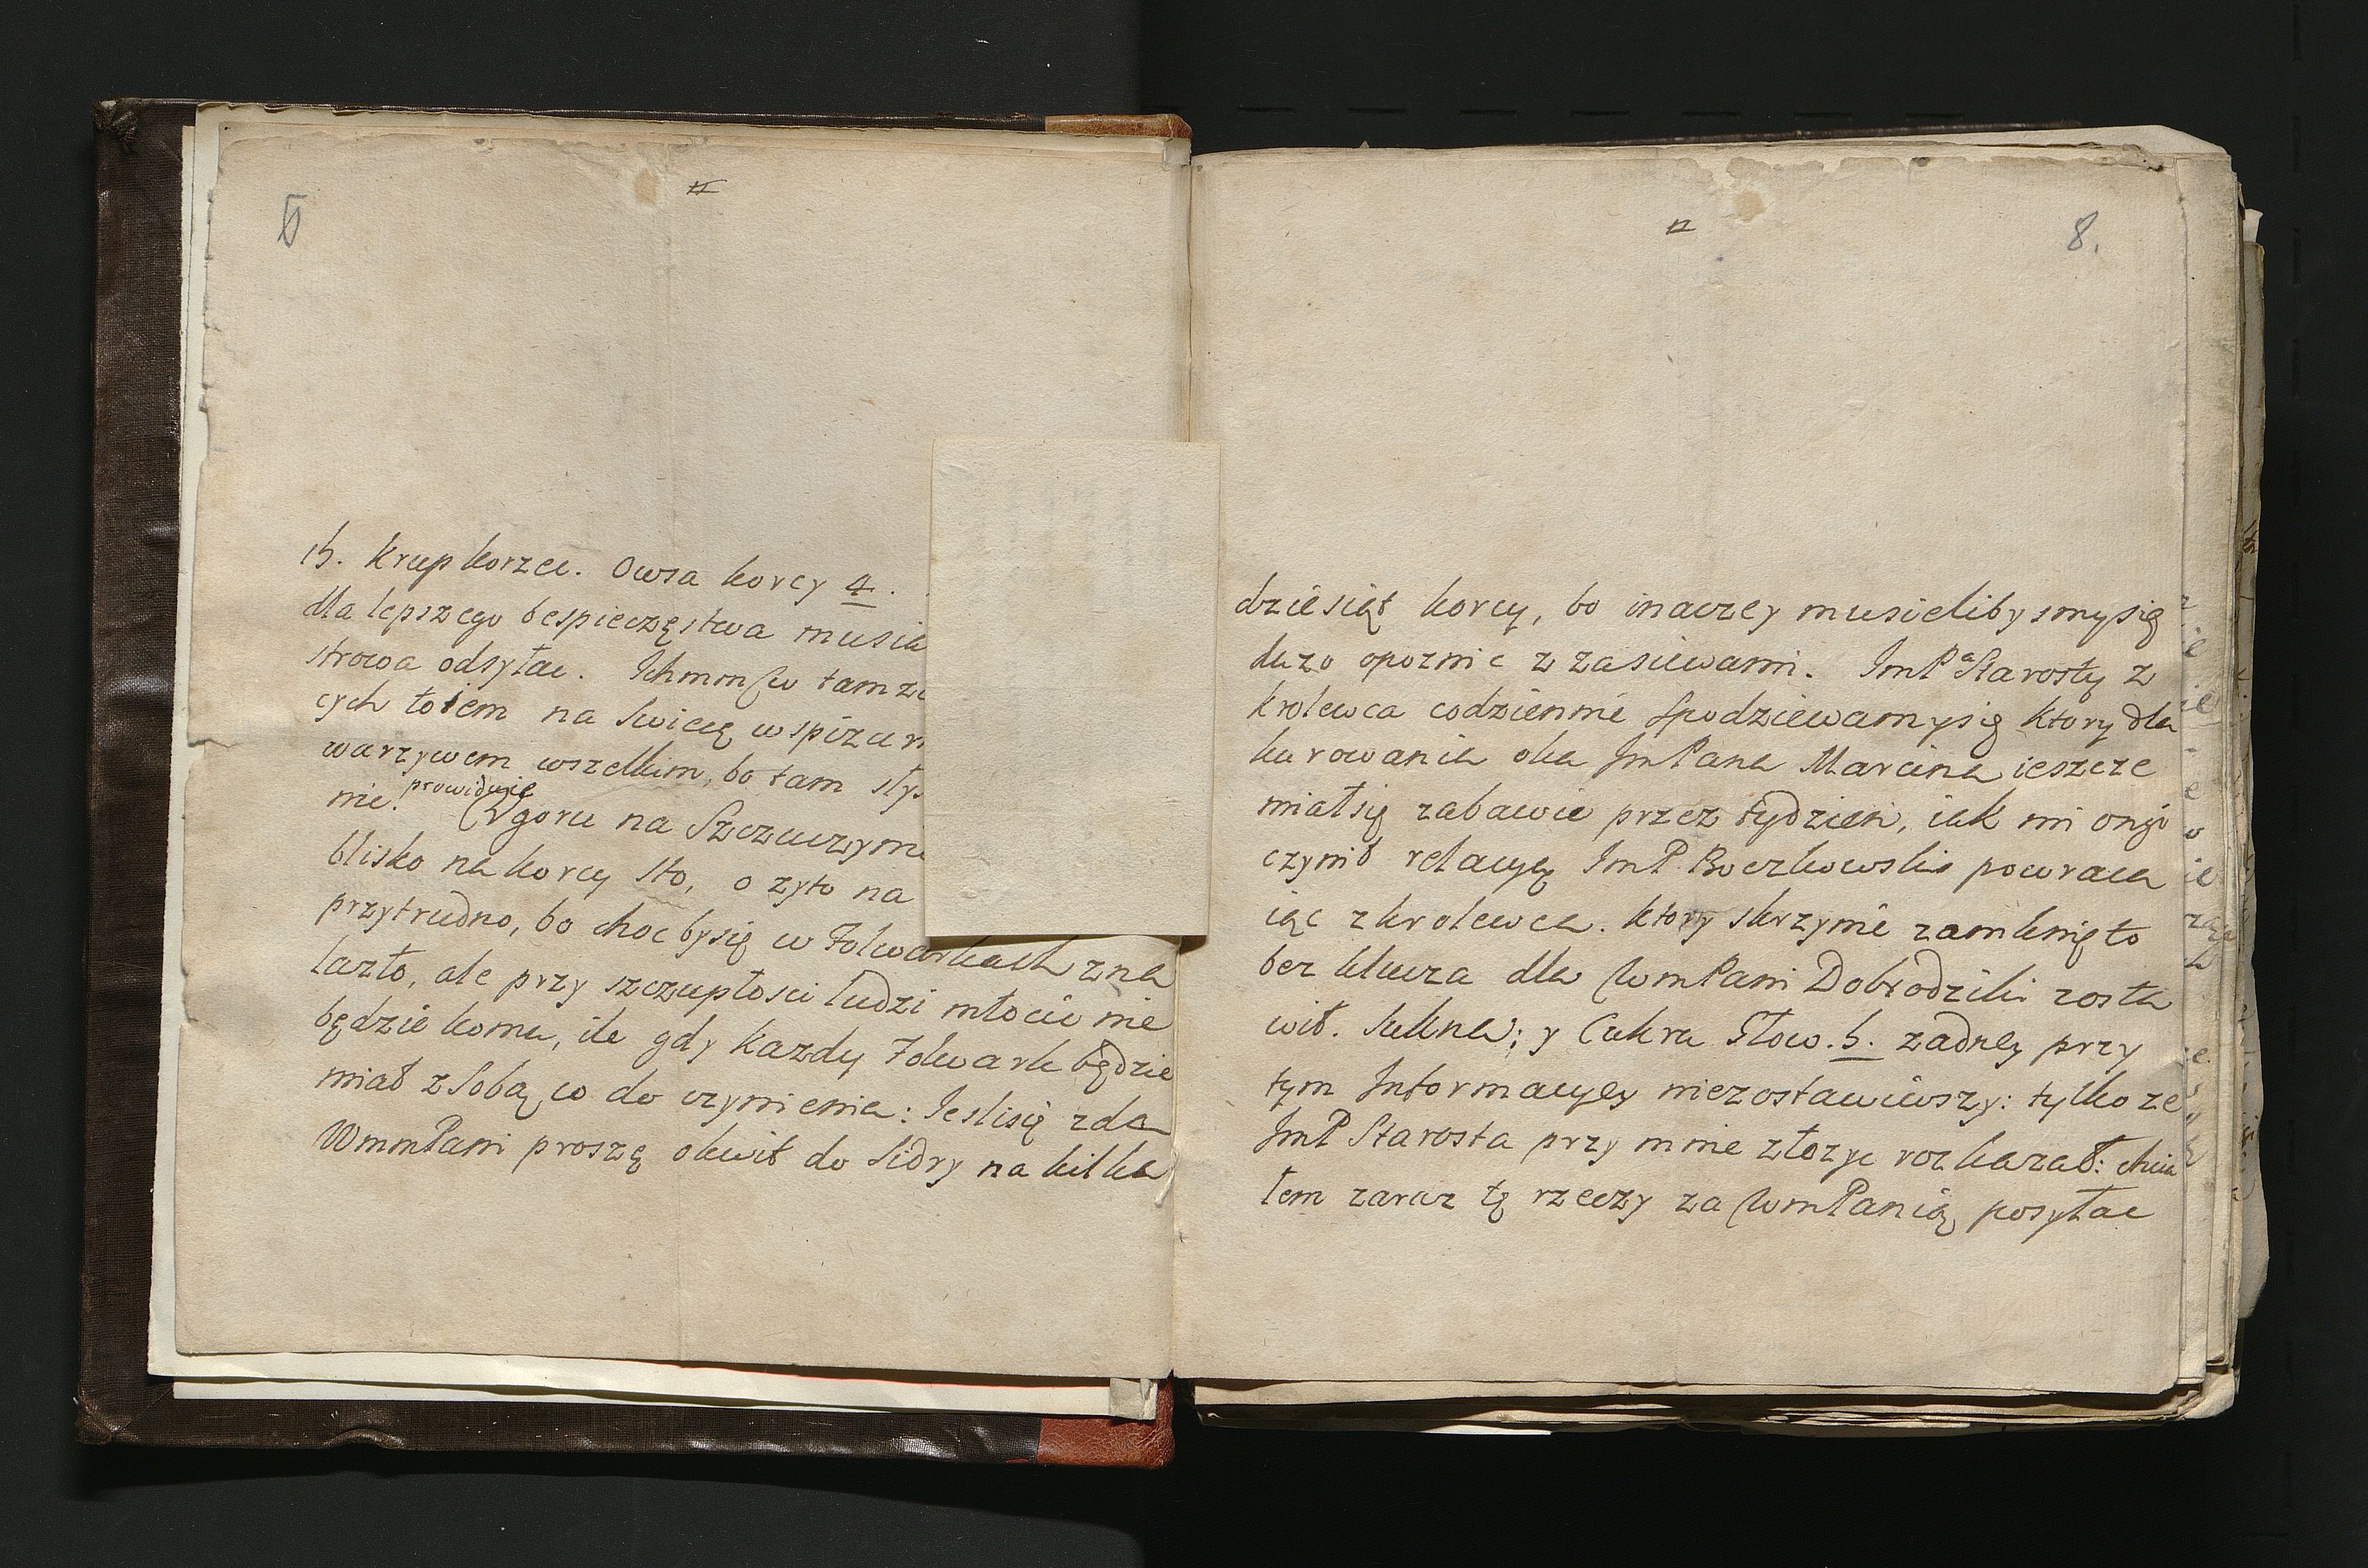 15. Krup korzec. Owsa korcy 4.
dla lepszego bespieczęstwa musia
strowa odsyłac. Ichmm tam
cych totem na Swiecę w spizar
warzywem wszelkim, bo tam sły
nie. prowiduię Zgoru na Szczuczynie
blisko na korcy sto, o zyto na
przytrudno, bo chocbysię w Folwarkach zna
lazło, ale przy szczupłosci ludzi młocic nie
będzie komu, ile gdy kazdy Folwark będzie
miał z Sobą co do czynienia: Ieslisię zda
WmmPani proszę o kwit do Sidry na kilka
8.
dziesiąt korcy, bo inaczey musielibysmysię
duzo opoznic z zasiewami. ImPa Starosty z
krolewca codziennie Spodziewamysię ktory dla
kurowania oka ImPana Marcina ieszcze
miałsię zabawic przez tydzien, iak mi
czynił relacyę ImP. Boczkowski powraca
iąc z krolewca. ktory skrzynie zamknięto
bez klucza dla WmPani Dobrodziki zosta
wił. Sukna; y Cukru Głow. 5. zadney przy
tym Informacyey niezostawiwszy: tylko ze
ImP Starosta przy mnie złozyc rozkazał: chcia
łem zaraz tę rzeczy za WmPanią posyłac